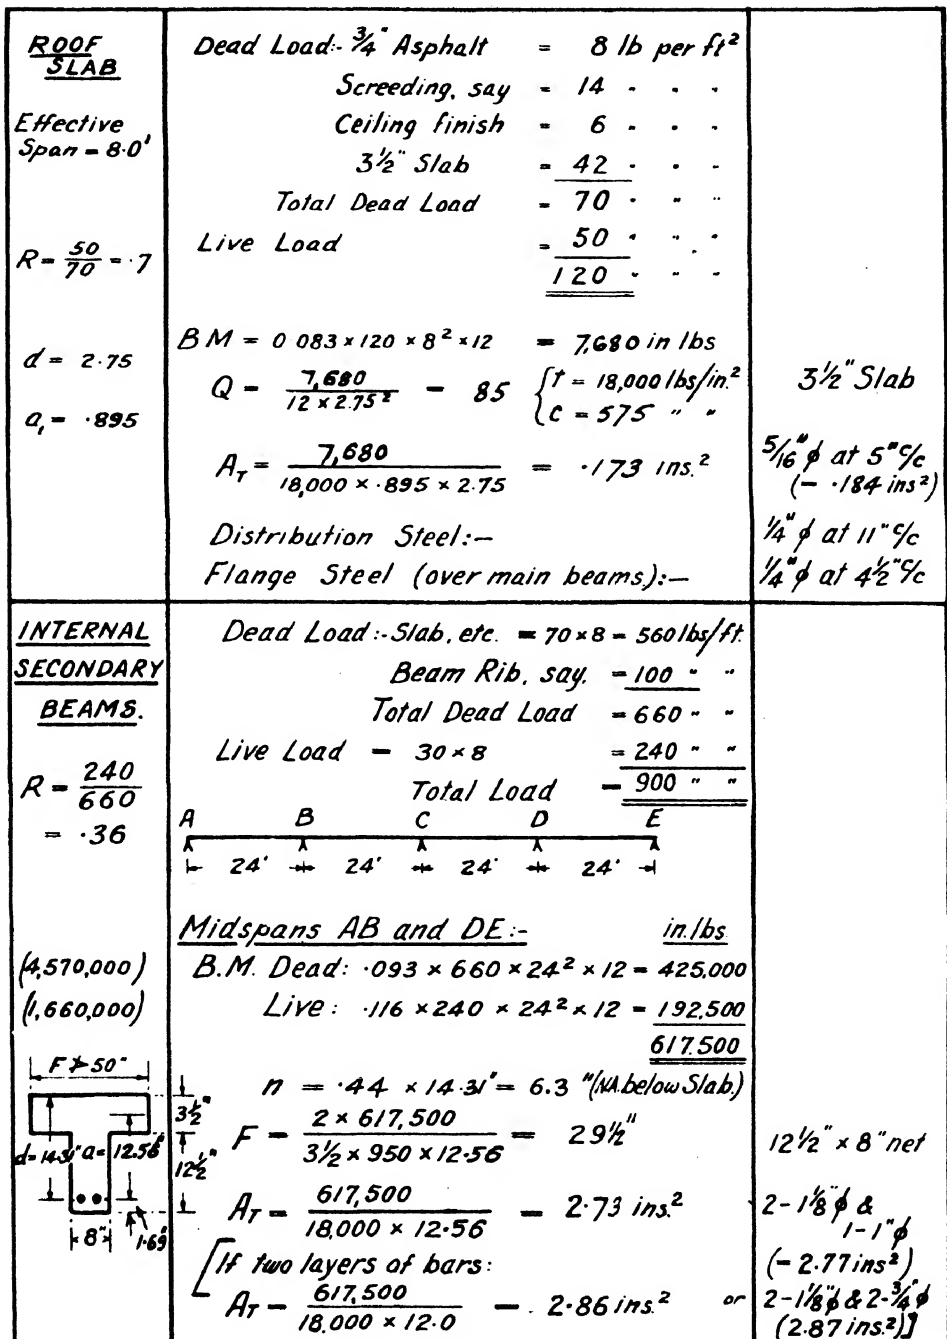 ROOF SLAB
Effective Span = 8·0'
R = 50/70 = ·7
d = 2·75
a₁ = ·895
Dead Load:- ¾" Asphalt = 8 lb per ft²
Screeding, say = 14 " " "
Ceiling finish = 6 " " "
3½" Slab = 42 " " "
Total Dead Load = 70 " " "
Live Load = 50 " " "
120 " " "
BM = 0 083 × 120 × 8² × 12 = 7,680 in lbs
Q = 7,680 / 12 × 2.75² = 85 { t = 18,000 lbs/in.²
c = 575 " "
A_T = 7,680 / 18,000 × ·895 × 2·75 = ·173 ins.²
Distribution Steel:–
Flange Steel (over main beams):–
3½" Slab
5/16" φ at 5" c/c
(= ·184 ins²)
¼" φ at 11" c/c
¼" φ at 4½" c/c
INTERNAL
SECONDARY
BEAMS.
R = 240/660
= ·36
(4,570,000)
(1,660,000)
F ≯ 50"
3½"
12½"
d = 14·31" a = 12.56"
8"
1.69"
Dead Load:- Slab, etc. = 70 × 8 = 560 lbs/ft.
Beam Rib, say. = 100 " "
Total Dead Load = 660 " "
Live Load = 30 × 8 = 240 " "
Total Load = 900 " "
A B C D E
24' 24' 24' 24'
Midspans AB and DE:- in.lbs
B.M. Dead: ·093 × 660 × 24² × 12 = 425,000
Live: ·116 × 240 × 24² × 12 = 192,500
617.500
n = ·44 × 14·31" = 6.3" (N.A. below Slab)
F = 2 × 617,500 / 3½ × 950 × 12·56 = 29½"
A_T = 617,500 / 18,000 × 12·56 = 2·73 ins.²
[If two layers of bars:
A_T = 617,500 / 18,000 × 12.0 = 2·86 ins.² or
12½" × 8" net
2 - 1⅛" φ &
1 - 1" φ
(= 2·77 ins²)
2 - 1⅛" φ & 2 - ¾" φ
(2.87 ins.²)]